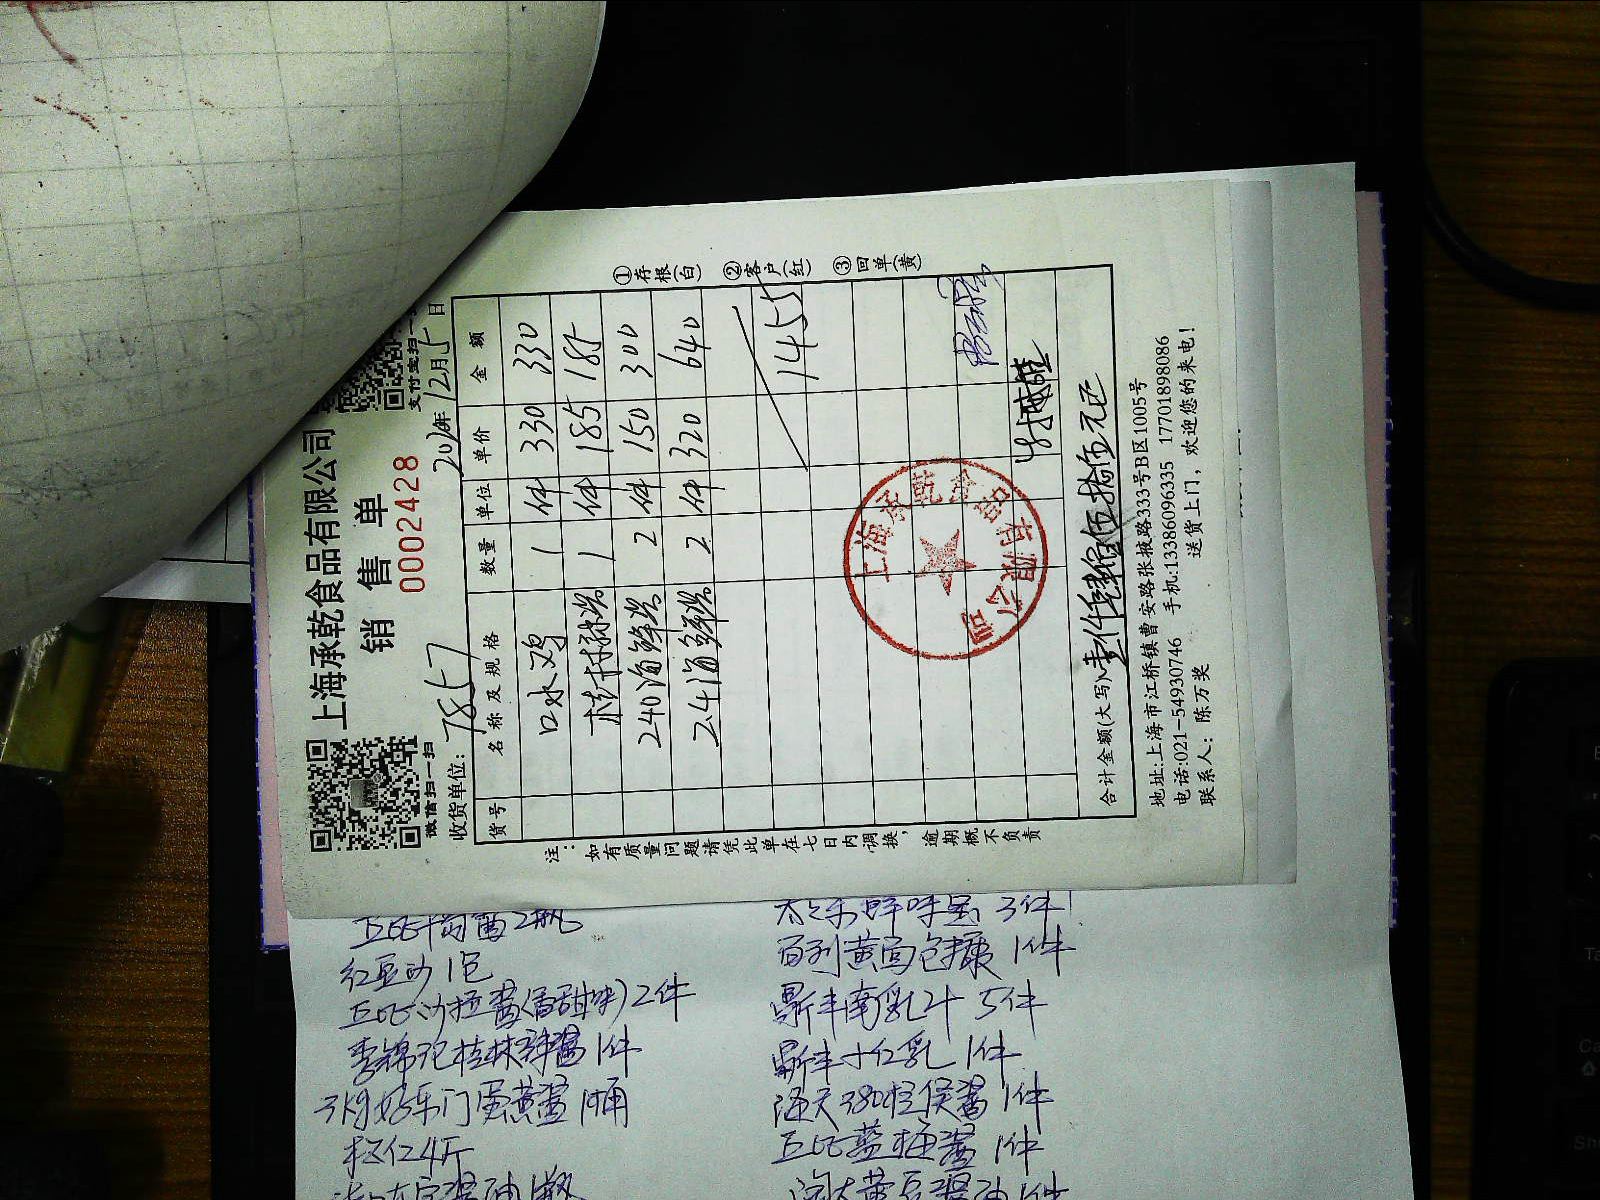 上海承乾食品有限公司
销售单
0002428
微信扫一扫
支付宝扫一
收货单位: 7857
年12月5日
货号 名称及规格 数量 单位 单价 金额
口水鸡 1 件 330 330
桂林辣酱 1 件 185 185
240海鲜酱 2 件 150 300
2.4海鲜酱 2 件 320 640
1455
上海承乾食品有限公司
合计金额(大写) 壹仟肆佰伍拾伍元正
地址:上海市江桥镇曹安路张掖路333号B区1005号
电话:021-54930746 手机:13386096335 17701898086
联系人: 陈万奖 送货上门，欢迎您的来电!
①存根(白) ②客户(红) ③回单(黄)
注：如有质量问题请凭此单在七日内调换，逾期概不负责
红豆沙1包
丘比沙拉酱(香甜味)2件
李锦记桂林辣酱1件
3kg好乐门蛋黄酱1桶
松仁4斤
太太乐鲜味宝3件
百利黄面包糠1件
鼎丰南乳汁5件
鼎丰 乳1件
海天380柱侯酱1件
丘比蓝莓酱1件
淘大黄豆酱油1件